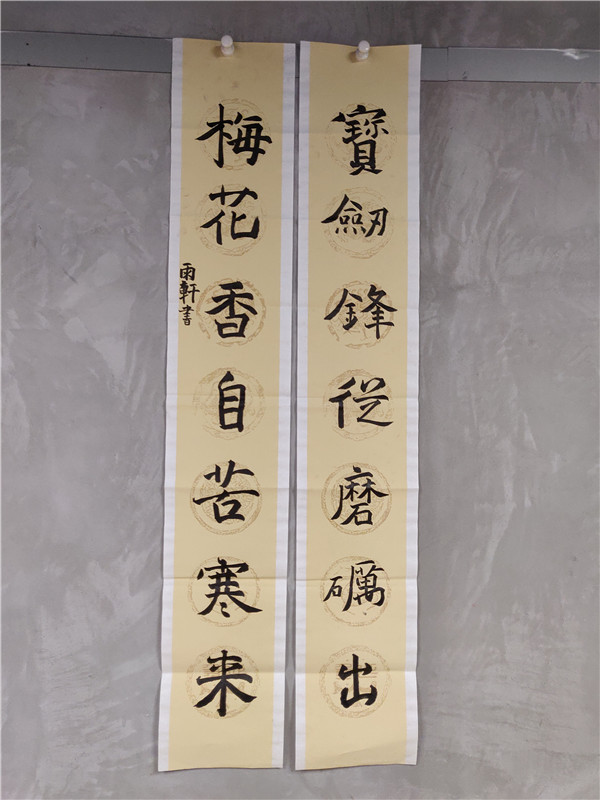 寶劒鋒從磨礪出
梅花香自苦寒来
雨軒書